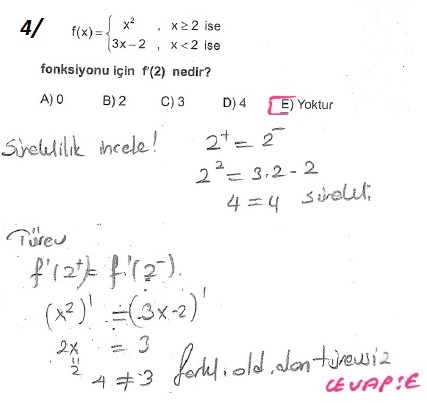 4/ f(x)= { x² , x ≥ 2 ise
3x – 2 , x < 2 ise
fonksiyonu için f'(2) nedir?
A) 0 B) 2 C) 3 D) 4 E) Yoktur
Süreklilik incele! 2⁺ = 2⁻
2² = 3.2 - 2
4 = 4 sürekli,
Türev
f'(2⁺) = f'(2⁻).
(x²)' = (3x-2)'
2x = 3
2
4 ≠ 3 farklı. old. dan türevsiz
CEVAP:E